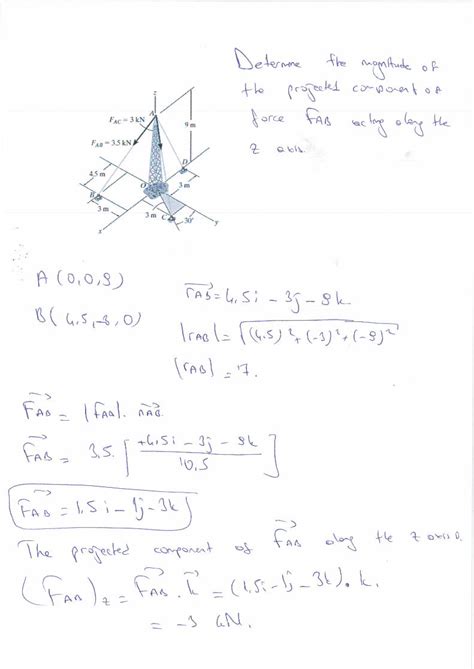 Determine the magnitude of
the projected component of
force FAB acting along the
z axis.
z
A
FAC = 3 kN
9 m
FAB = 3.5 kN
D
4.5 m
O
3 m
B
3 m
3 m
C
30°
x
y
A (0,0,9)
B( 4,5,-3,0)
rAB = 4,5i - 3j - 9k
|rAB| = √(4.5)² + (-3)² + (-9)²
|rAB| = 7.
FAB = |FAB|. nAB.
FAB = 3.5. [ +4,5i - 3j - 9k / 10,5 ]
FAB = 1,5i - 1j - 3k
The projected component of FAB along the z axis
(FAB)z = FAB . k = (1,5i - 1j - 3k). k.
= -3 kN.